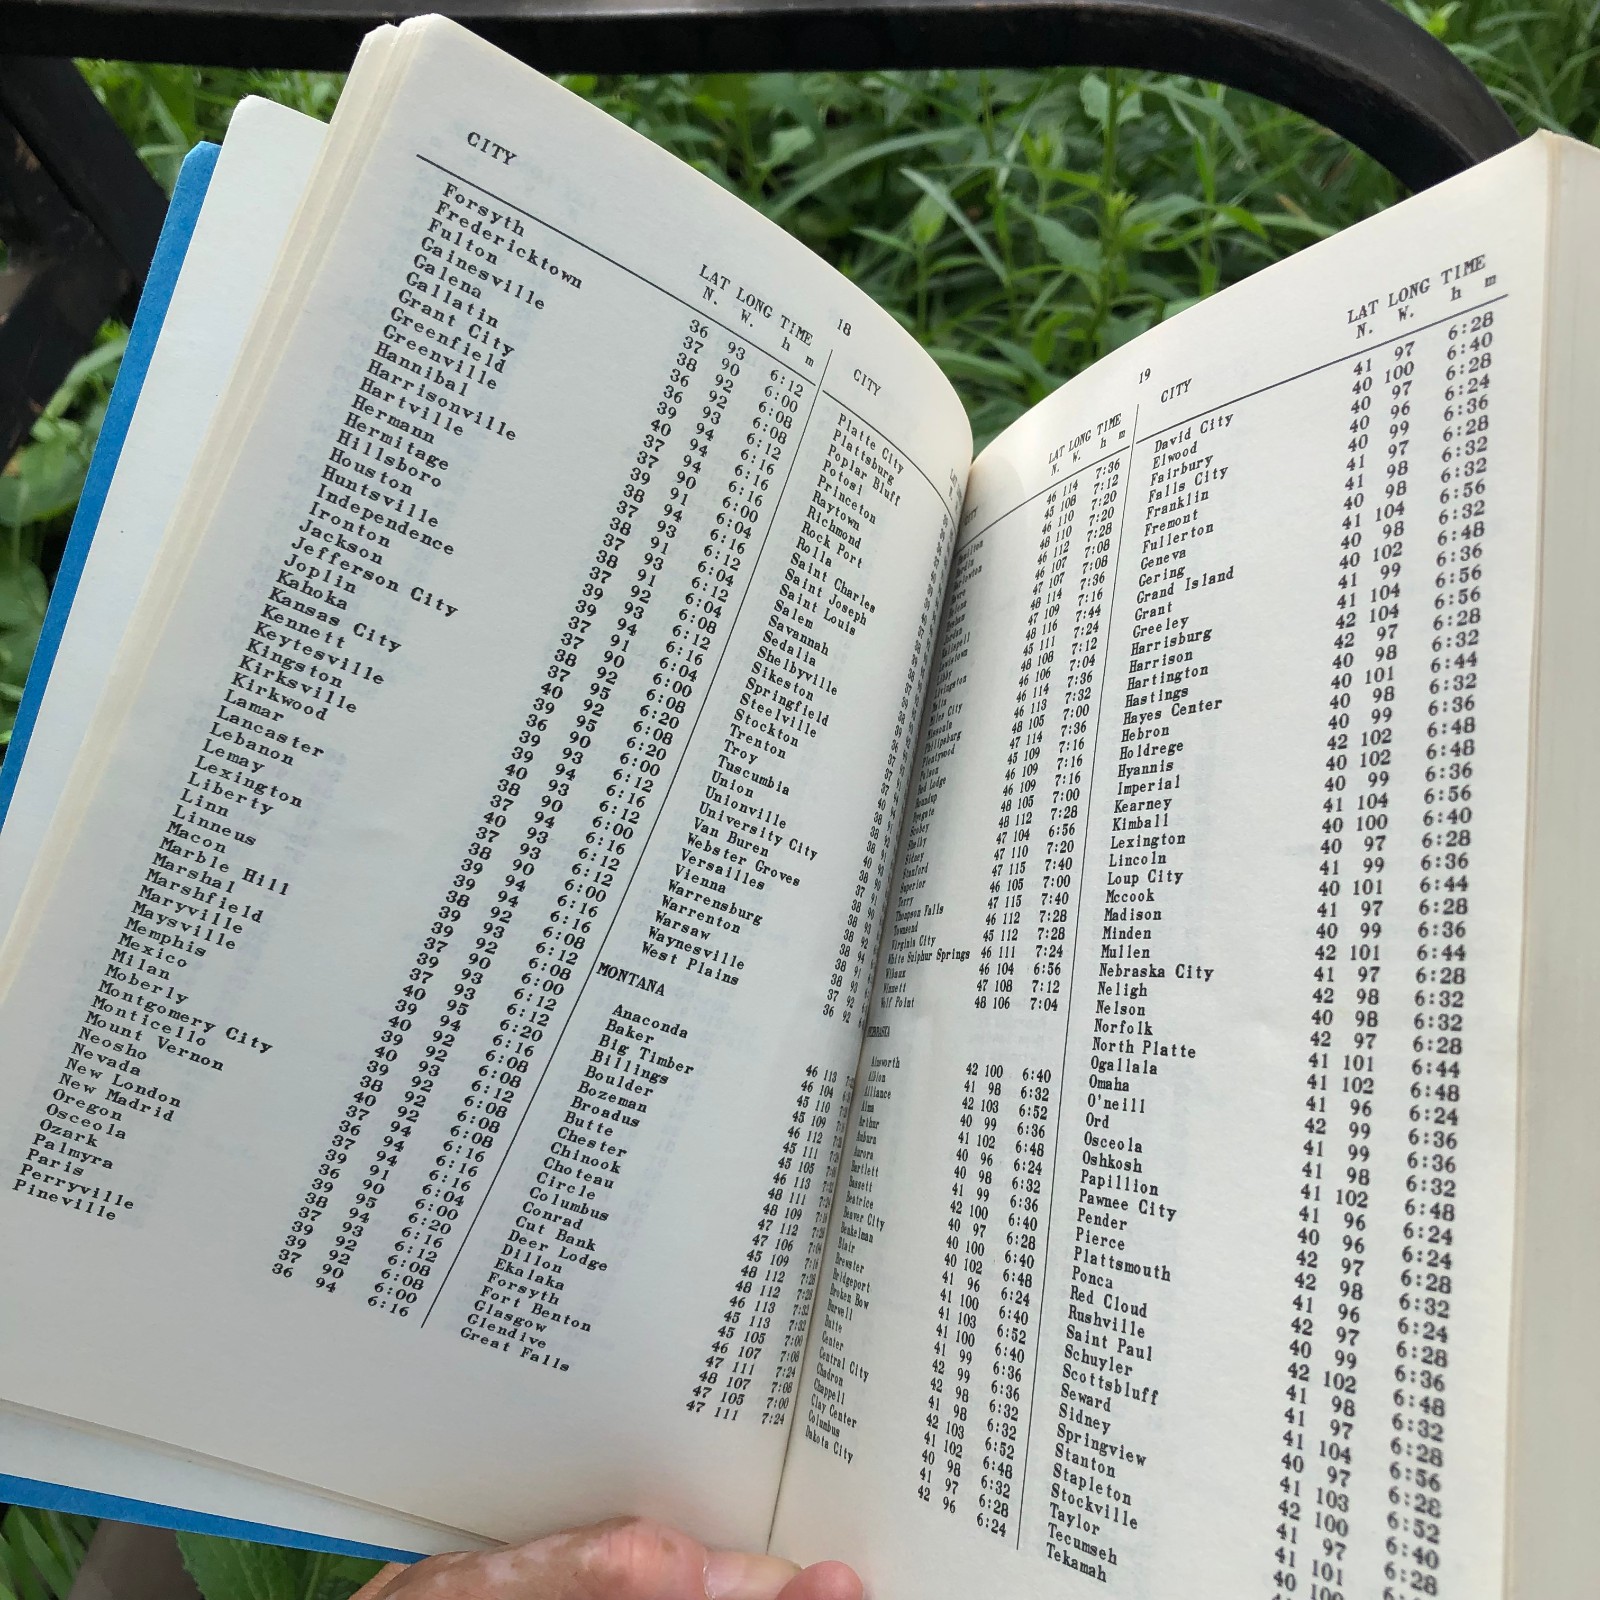 18
CITY LAT LONG TIME
N. W. h m
Forsyth 36 93 6:12
Fredericktown 37 90 6:00
Fulton 38 92 6:08
Gainesville 36 92 6:08
Galena 36 93 6:12
Gallatin 39 94 6:16
Grant City 40 94 6:16
Greenfield 37 94 6:16
Greenville 37 90 6:00
Hannibal 39 91 6:04
Harrisonville 38 94 6:16
Hartville 37 93 6:12
Hermann 38 91 6:04
Hermitage 37 93 6:12
Hillsboro 38 91 6:04
Houston 37 92 6:08
Huntsville 39 93 6:12
Independence 39 94 6:16
Ironton 37 91 6:04
Jackson 37 90 6:00
Jefferson City 38 92 6:08
Joplin 37 95 6:20
Kahoka 40 92 6:08
Kansas City 39 95 6:20
Kennett 36 90 6:00
Keytesville 39 93 6:12
Kingston 39 94 6:16
Kirksville 40 93 6:12
Kirkwood 38 90 6:00
Lamar 37 94 6:16
Lancaster 40 93 6:12
Lebanon 37 93 6:12
Lemay 38 90 6:00
Lexington 39 94 6:16
Liberty 39 94 6:16
Linn 38 92 6:08
Linneus 39 93 6:12
Macon 39 92 6:08
Marble Hill 37 90 6:00
Marshal 39 93 6:12
Marshfield 37 93 6:12
Maryville 40 95 6:20
Maysville 39 94 6:16
Memphis 40 92 6:08
Mexico 39 92 6:08
Milan 40 93 6:12
Moberly 39 92 6:08
Montgomery City 38 92 6:08
Monticello 40 92 6:08
Mount Vernon 37 94 6:16
Neosho 36 94 6:16
Nevada 37 94 6:16
New London 39 91 6:04
New Madrid 36 90 6:00
Oregon 39 95 6:20
Osceola 38 94 6:16
Ozark 37 93 6:12
Palmyra 39 92 6:08
Paris 39 92 6:08
Perryville 37 90 6:00
Pineville 36 94 6:16
CITY
Platte City
Plattsburg
Poplar Bluff
Potosi
Princeton
Raytown
Richmond
Rock Port
Rolla
Saint Charles
Saint Joseph
Saint Louis
Salem
Savannah
Sedalia
Shelbyville
Sikeston
Springfield
Steelville
Stockton
Trenton
Troy
Tuscumbia
Union
Unionville
University City
Van Buren
Webster Groves
Versailles
Vienna
Warrensburg
Warrenton
Warsaw
Waynesville
West Plains 36 92
MONTANA
Anaconda 46 113
Baker 46 104
Big Timber 45 110
Billings 45 109
Boulder 46 112
Bozeman 45 111
Broadus 45 105
Butte 46 113
Chester 48 111
Chinook 48 109
Choteau 47 112
Circle 47 106
Columbus 45 109
Conrad 48 112
Cut Bank 48 112
Deer Lodge 46 113
Dillon 45 113
Ekalaka 45 105
Forsyth 46 107
Fort Benton 47 111
Glasgow 48 107 7:08
Glendive 47 105 7:00
Great Falls 47 111 7:24
19
CITY LAT LONG TIME
N. W. h m
46 114 7:36
45 108 7:12
46 110 7:20
48 110 7:20
46 112 7:28
46 107 7:08
47 107 7:08
48 114 7:36
47 109 7:16
Libby 48 116 7:44
Livingston 45 111 7:24
48 108 7:12
Miles City 46 106 7:04
Missoula 46 114 7:36
Philipsburg 46 113 7:32
Plentywood 48 105 7:00
Polson 47 114 7:36
Red Lodge 45 109 7:16
Roundup 46 109 7:16
Ryegate 46 109 7:16
Scobey 48 105 7:00
Shelby 48 112 7:28
Sidney 47 104 6:56
Stanford 47 110 7:20
Superior 47 115 7:40
Terry 46 105 7:00
Thompson Falls 47 115 7:40
Townsend 46 112 7:28
Virginia City 45 112 7:28
White Sulphur Springs 46 111 7:24
Wibaux 46 104 6:56
Winnett 47 108 7:12
Wolf Point 48 106 7:04
NEBRASKA
Ainsworth 42 100 6:40
Albion 41 98 6:32
Alliance 42 103 6:52
Alma 40 99 6:36
Arthur 41 102 6:48
Auburn 40 96 6:24
Aurora 40 98 6:32
Bartlett 41 99 6:36
Bassett 42 100 6:40
Beatrice 40 97 6:28
Beaver City 40 100 6:40
Benkelman 40 102 6:48
Blair 41 96 6:24
Brewster 41 100 6:40
Bridgeport 41 103 6:52
Broken Bow 41 100 6:40
Burwell 41 99 6:36
Butte 42 99 6:36
Center 42 98 6:32
Central City 41 98 6:32
Chadron 42 103 6:52
Chappell 41 102 6:48
Clay Center 40 98 6:32
Columbus 41 97 6:28
Dakota City 42 96 6:24
CITY LAT LONG TIME
N. W. h m
David City 41 97 6:28
Elwood 40 100 6:40
Fairbury 40 97 6:28
Falls City 40 96 6:24
Franklin 40 99 6:36
Fremont 41 97 6:28
Fullerton 41 98 6:32
Geneva 40 98 6:32
Gering 41 104 6:56
Grand Island 40 98 6:32
Grant 40 102 6:48
Greeley 41 99 6:36
Harrisburg 41 104 6:56
Harrison 42 104 6:56
Hartington 42 97 6:28
Hastings 40 98 6:32
Hayes Center 40 101 6:44
Hebron 40 98 6:32
Holdrege 40 99 6:36
Hyannis 42 102 6:48
Imperial 40 102 6:48
Kearney 40 99 6:36
Kimball 41 104 6:56
Lexington 40 100 6:40
Lincoln 40 97 6:28
Loup City 41 99 6:36
Mccook 40 101 6:44
Madison 41 97 6:28
Minden 40 99 6:36
Mullen 42 101 6:44
Nebraska City 41 97 6:28
Neligh 42 98 6:32
Nelson 40 98 6:32
Norfolk 42 97 6:28
North Platte 41 101 6:44
Ogallala 41 102 6:48
Omaha 41 96 6:24
O'neill 42 99 6:36
Ord 41 99 6:36
Osceola 41 98 6:32
Oshkosh 41 102 6:48
Papillion 41 96 6:24
Pawnee City 40 96 6:24
Pender 42 97 6:28
Pierce 42 98 6:32
Plattsmouth 41 96 6:24
Ponca 42 97 6:28
Red Cloud 40 99 6:36
Rushville 42 102 6:48
Saint Paul 41 98 6:32
Schuyler 41 97 6:28
Scottsbluff 41 104 6:56
Seward 40 97 6:28
Sidney 41 103 6:52
Springview 42 100 6:40
Stanton 41 97 6:28
Stapleton 41 101
Stockville 40 100
Taylor
Tecumseh
Tekamah